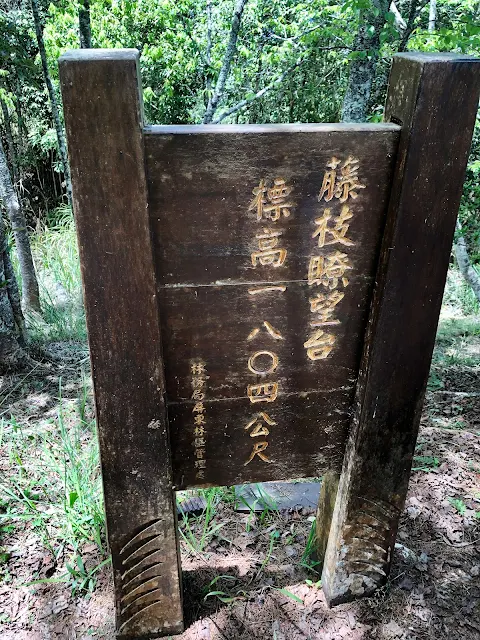 藤枝瞭望台
標高一八〇四公尺
林務局屏東林區管理處